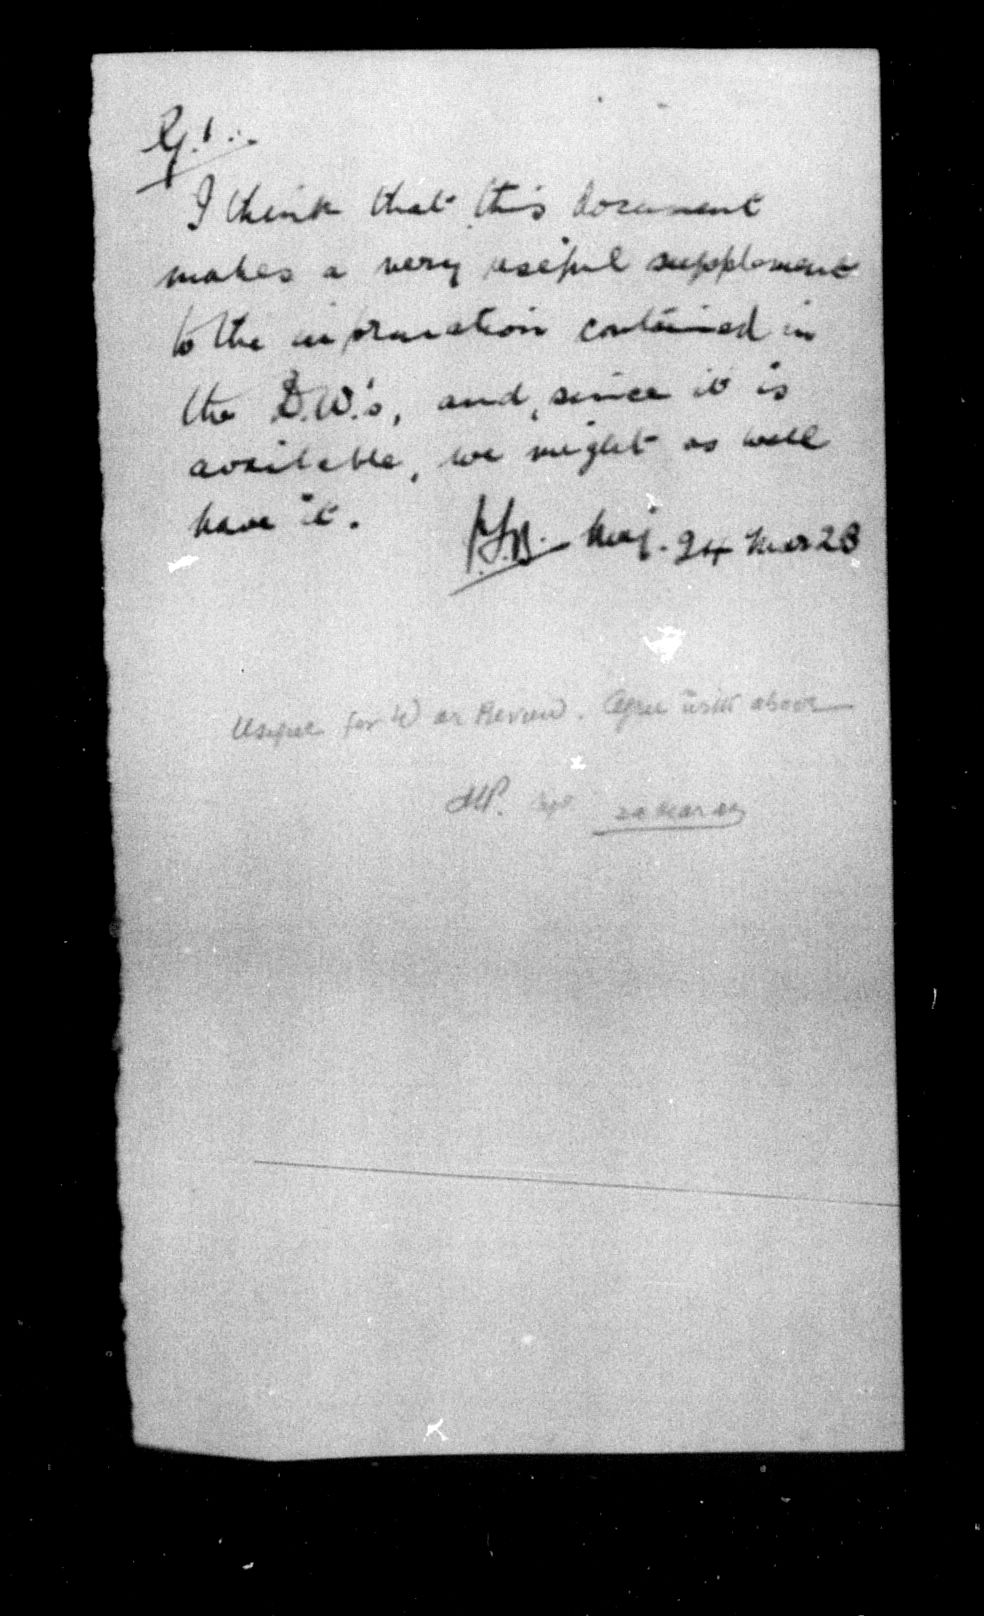 G.1.
I think that this document
makes a very useful supplement
to the information contained in
the D.W.'s, and, since it is
available, we might as well
have it.
Maj. 24 Mar 28
Useful for W or Review. Agree with above